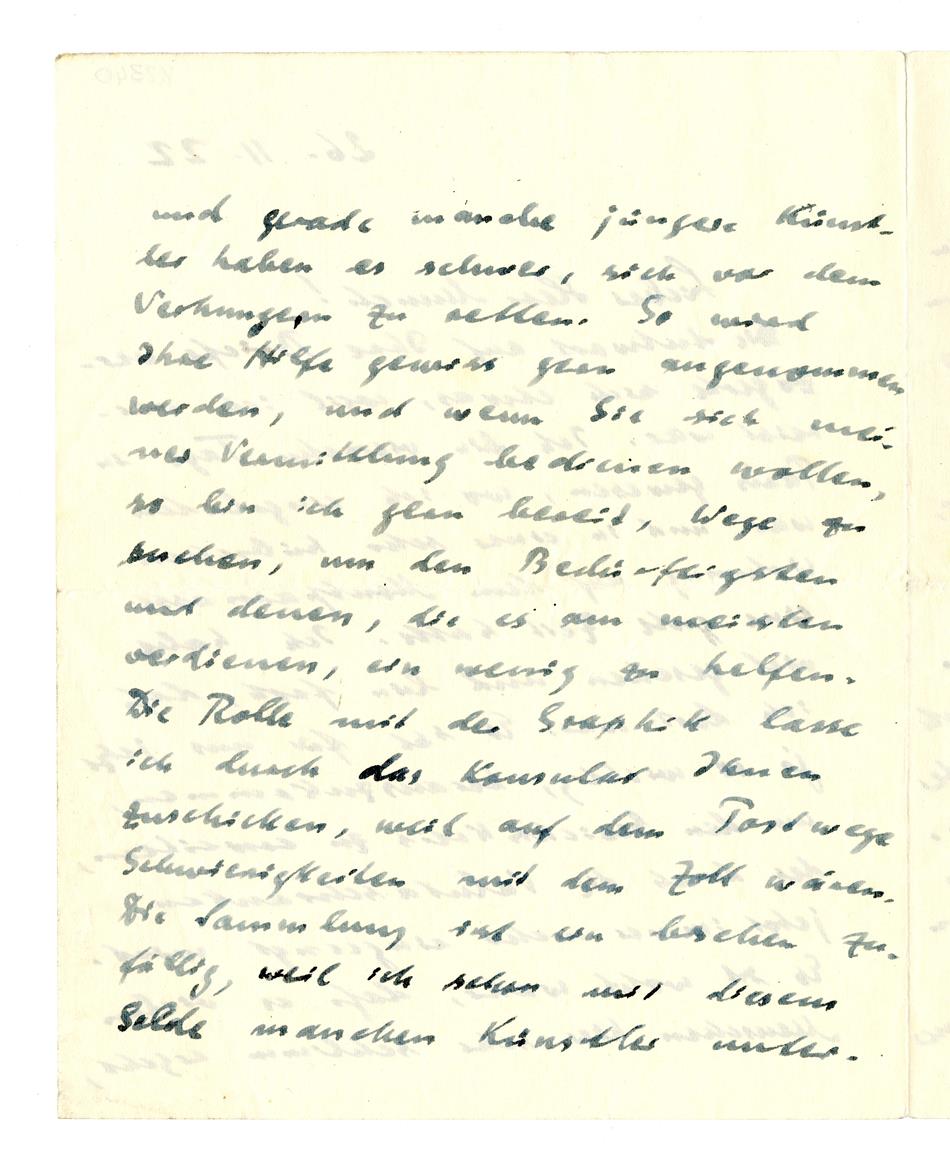 und gerade manche jüngere Künst-
ler haben es schwer, sich vor dem
Verhungern zu retten. So wird
Ihre Hilfe gewiss gern angenommen
werden, und wenn Sie sich mei-
ner Vermittlung bedienen wollen,
so bin ich gern bereit, Wege zu
suchen, um den Bedürftigsten
und denen, die es am meisten
verdienen, ein wenig zu helfen.
Die Rolle mit der Graphik lasse
ich durch das Konsulat Ihnen
zuschicken, weil auf dem Postwege
Schwierigkeiten mit dem Zoll wären.
Die Sammlung ist ein bischen zu-
fällig, weil ich schon mit diesem
Gelde manchen Künstler unter-
26. 11. 22